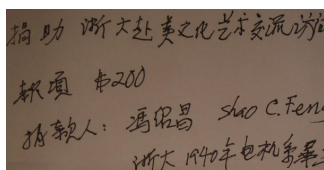 捐助 浙大赴美文化艺术交流访
款項 $200
捐款人: 馮紹昌 Shao C. Feng
浙大 1940年电机系畢